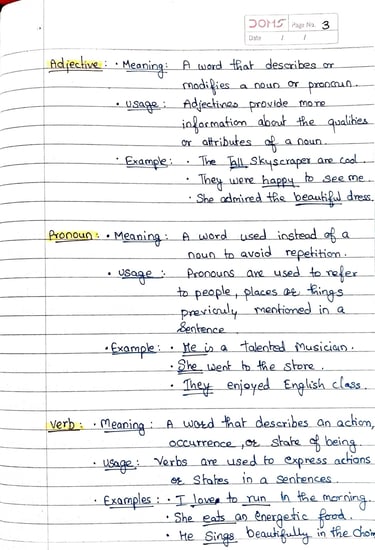 DOMS Page No. 3
Date / /
Adjective : • Meaning : A word that describes or
modifies a noun or pronoun.
• Usage : Adjectives provide more
information about the qualities
or attributes of a noun.
• Example : • The Tall Skyscraper are cool.
• They were happy to see me.
• She admired the beautiful dress.
Pronoun : • Meaning : A word used instead of a
noun to avoid repetition.
• Usage : Pronouns are used to refer
to people, places or things
previouly mentioned in a
Sentence.
• Example : • He is a talented Musician.
• She went to the store.
• They enjoyed English class.
Verb : • Meaning : A word that describes an action,
occurrence, or state of being.
• Usage : Verbs are used to express actions
or States in a sentences.
• Examples : • I love to run In the morning.
• She eats an energetic food.
• He Sings beautifully in the Choir